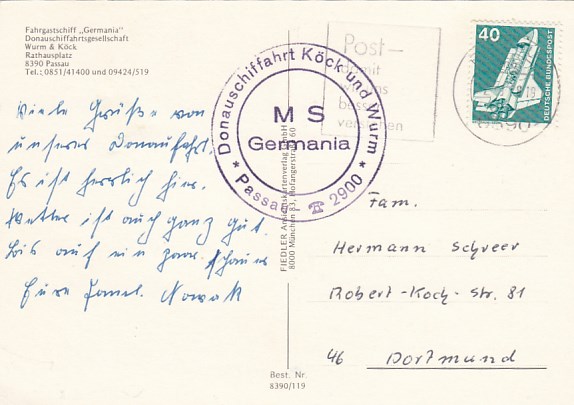 Fahrgastschiff „Germania"
Donauschiffahrtsgesellschaft
Wurm & Köck
Rathausplatz
8390 Passau
Tel.: 0851/41400 und 09424/519
Viele Grüße von
unserer Donaufahrt.
Es ist herrlich hier.
Wetter ist auch ganz gut.
bis auf ein paar Schauer
Eure Faml. Nowak
Donauschiffahrt Köck und Wurm
MS
Germania
* Passau ☎ 2900 *
Post-
damit
uns
besser
verstehen
40
DEUTSCHE BUNDESPOST
FIEDLER Ansichtskartenverlag GmbH
8000 München 83, Hofangerstraße
Fam.
Hermann Schreer
Robert-Koch-Str. 81
46 Dortmund
Best. Nr.
8390/119